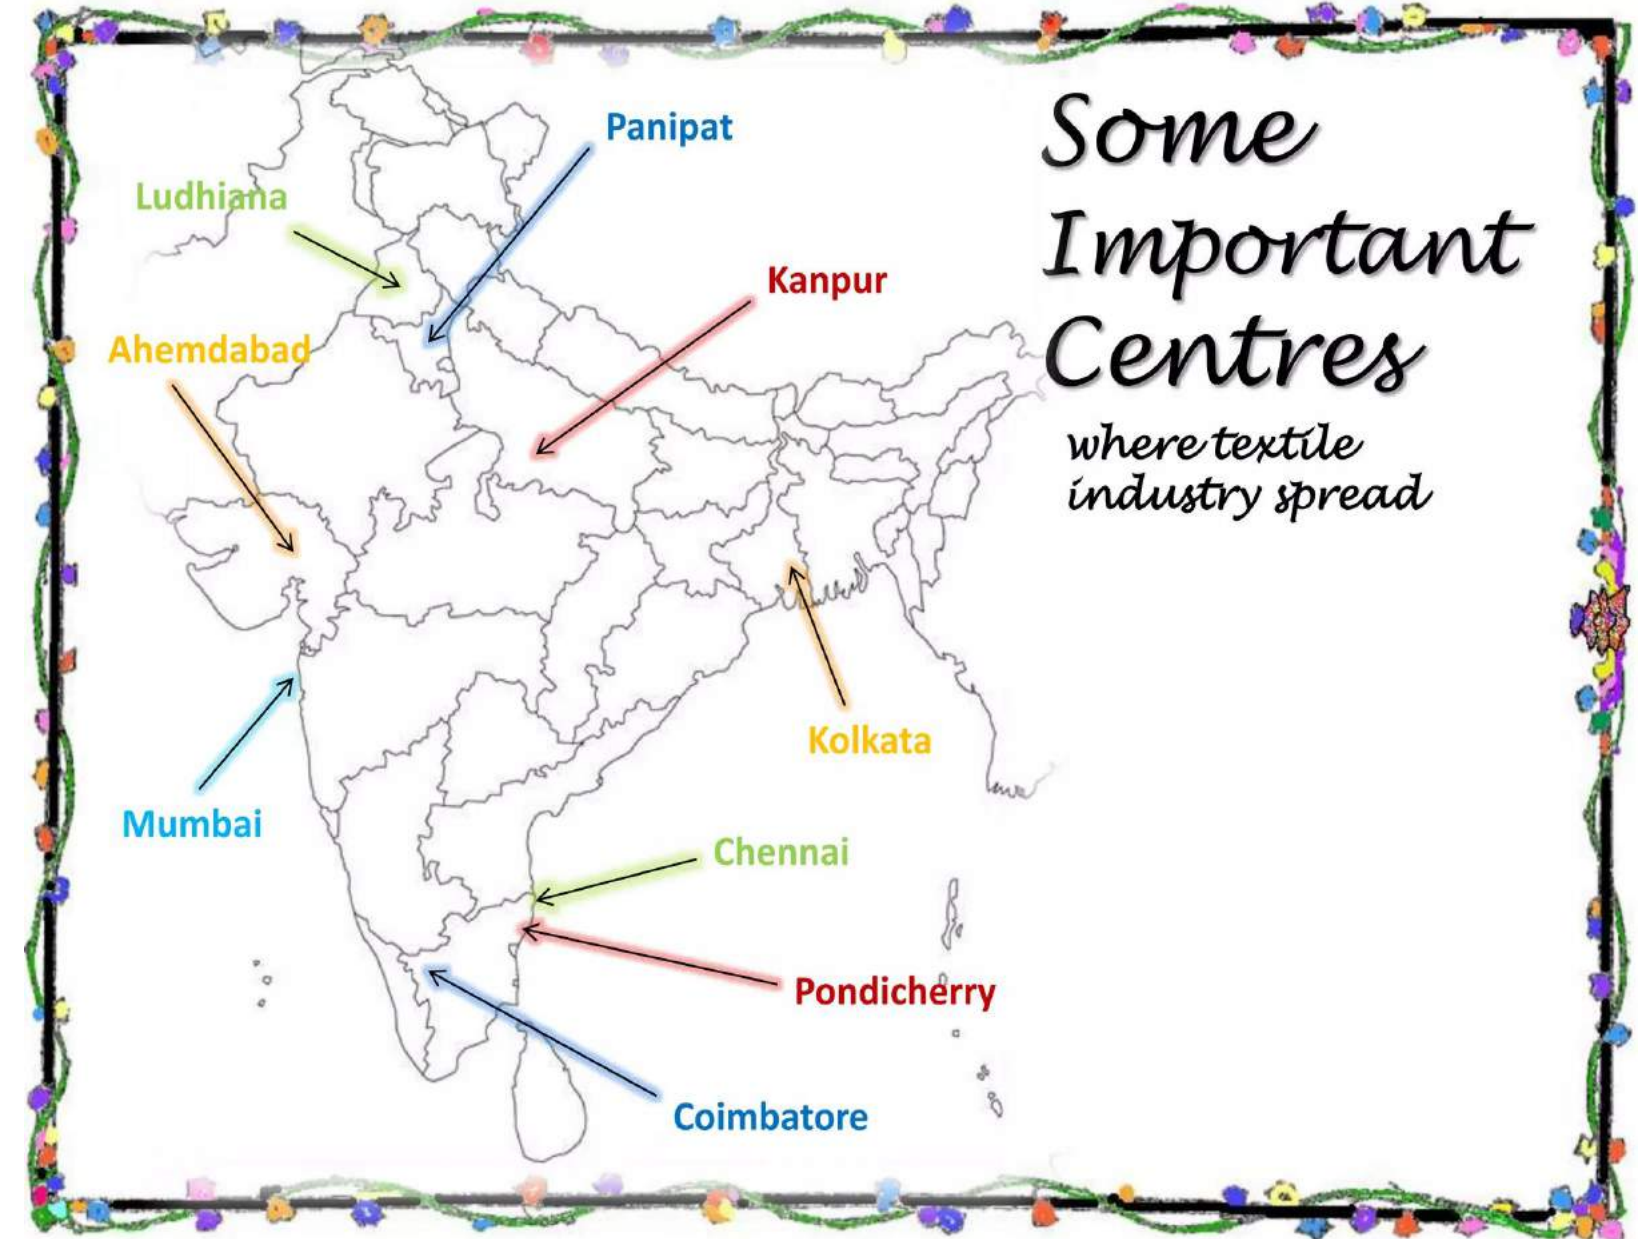 Some
Important
Centres
where textile
industry spread
Panipat
Ludhiana
Kanpur
Ahemdabad
Kolkata
Mumbai
Chennai
Pondicherry
Coimbatore